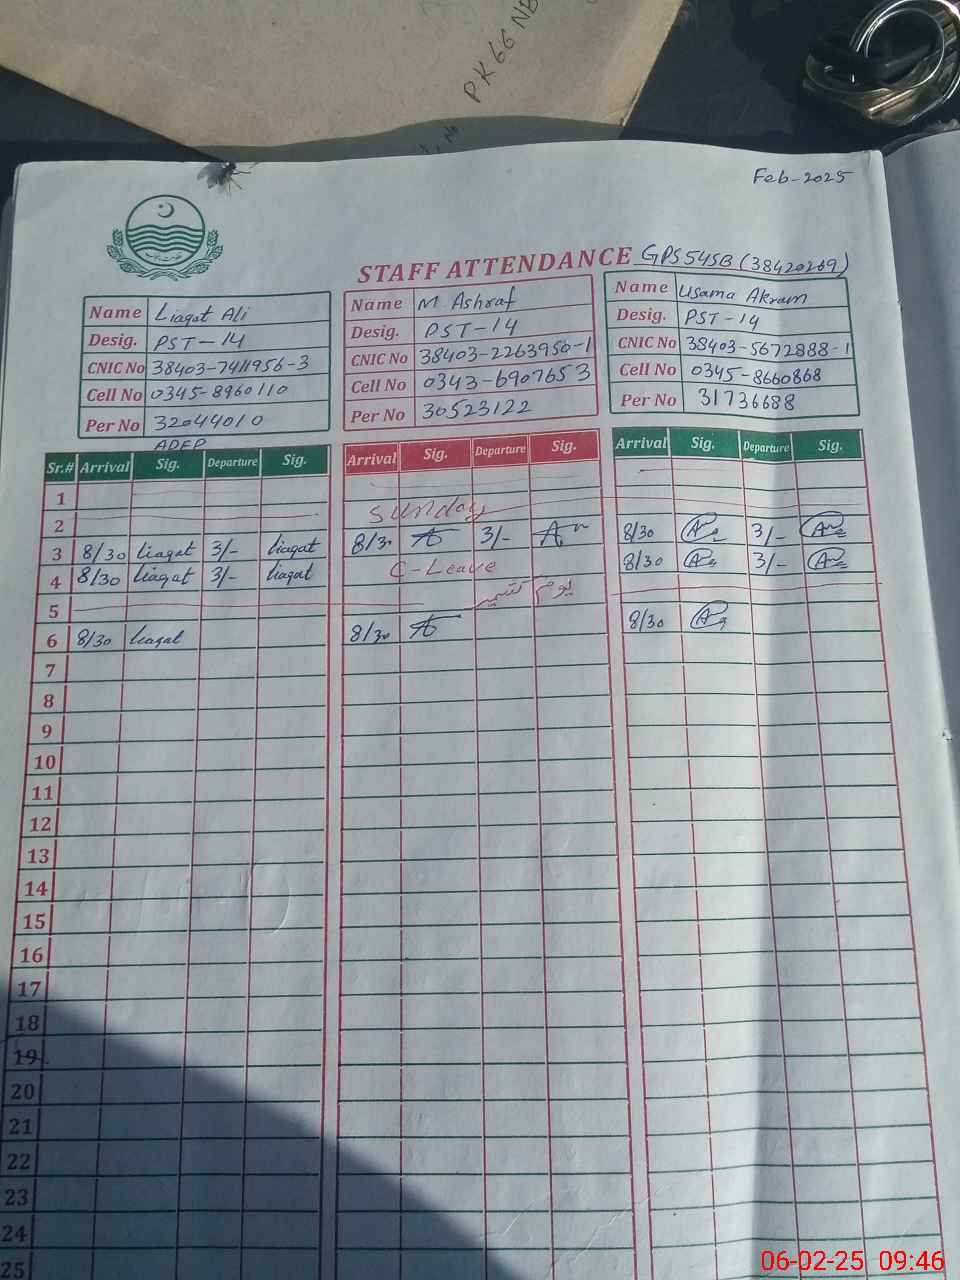 PK66NB
No
Feb-2025
حکومت پنجاب
STAFF ATTENDANCE GPS 54SB (38420269)
Name Liaqat Ali
Desig. PST-14
CNIC No 38403-7411956-3
Cell No 0345-8960110
Per No 32044010
ADEP
Name M. Ashraf
Desig. PST-14
CNIC No 38403-2263950-1
Cell No 0343-6907653
Per No 30523122
Name Usama Akram
Desig. PST-14
CNIC No 38403-5672888-1
Cell No 0345-8660868
Per No 31736688
Sr.# Arrival Sig. Departure Sig. Arrival Sig. Departure Sig. Arrival Sig. Departure Sig.
1
2 Sunday
3 8/30 Liaqat 3/- Liaqat 8/30 3/- 8/30 3/-
4 8/30 Liaqat 3/- Liaqat C-Leave 8/30 3/-
5 یوم کشمیر
6 8/30 Liaqat 8/30 8/30
7
8
9
10
11
12
13
14
15
16
17
18
19
20
21
22
23
24
25
06-02-25 09:46